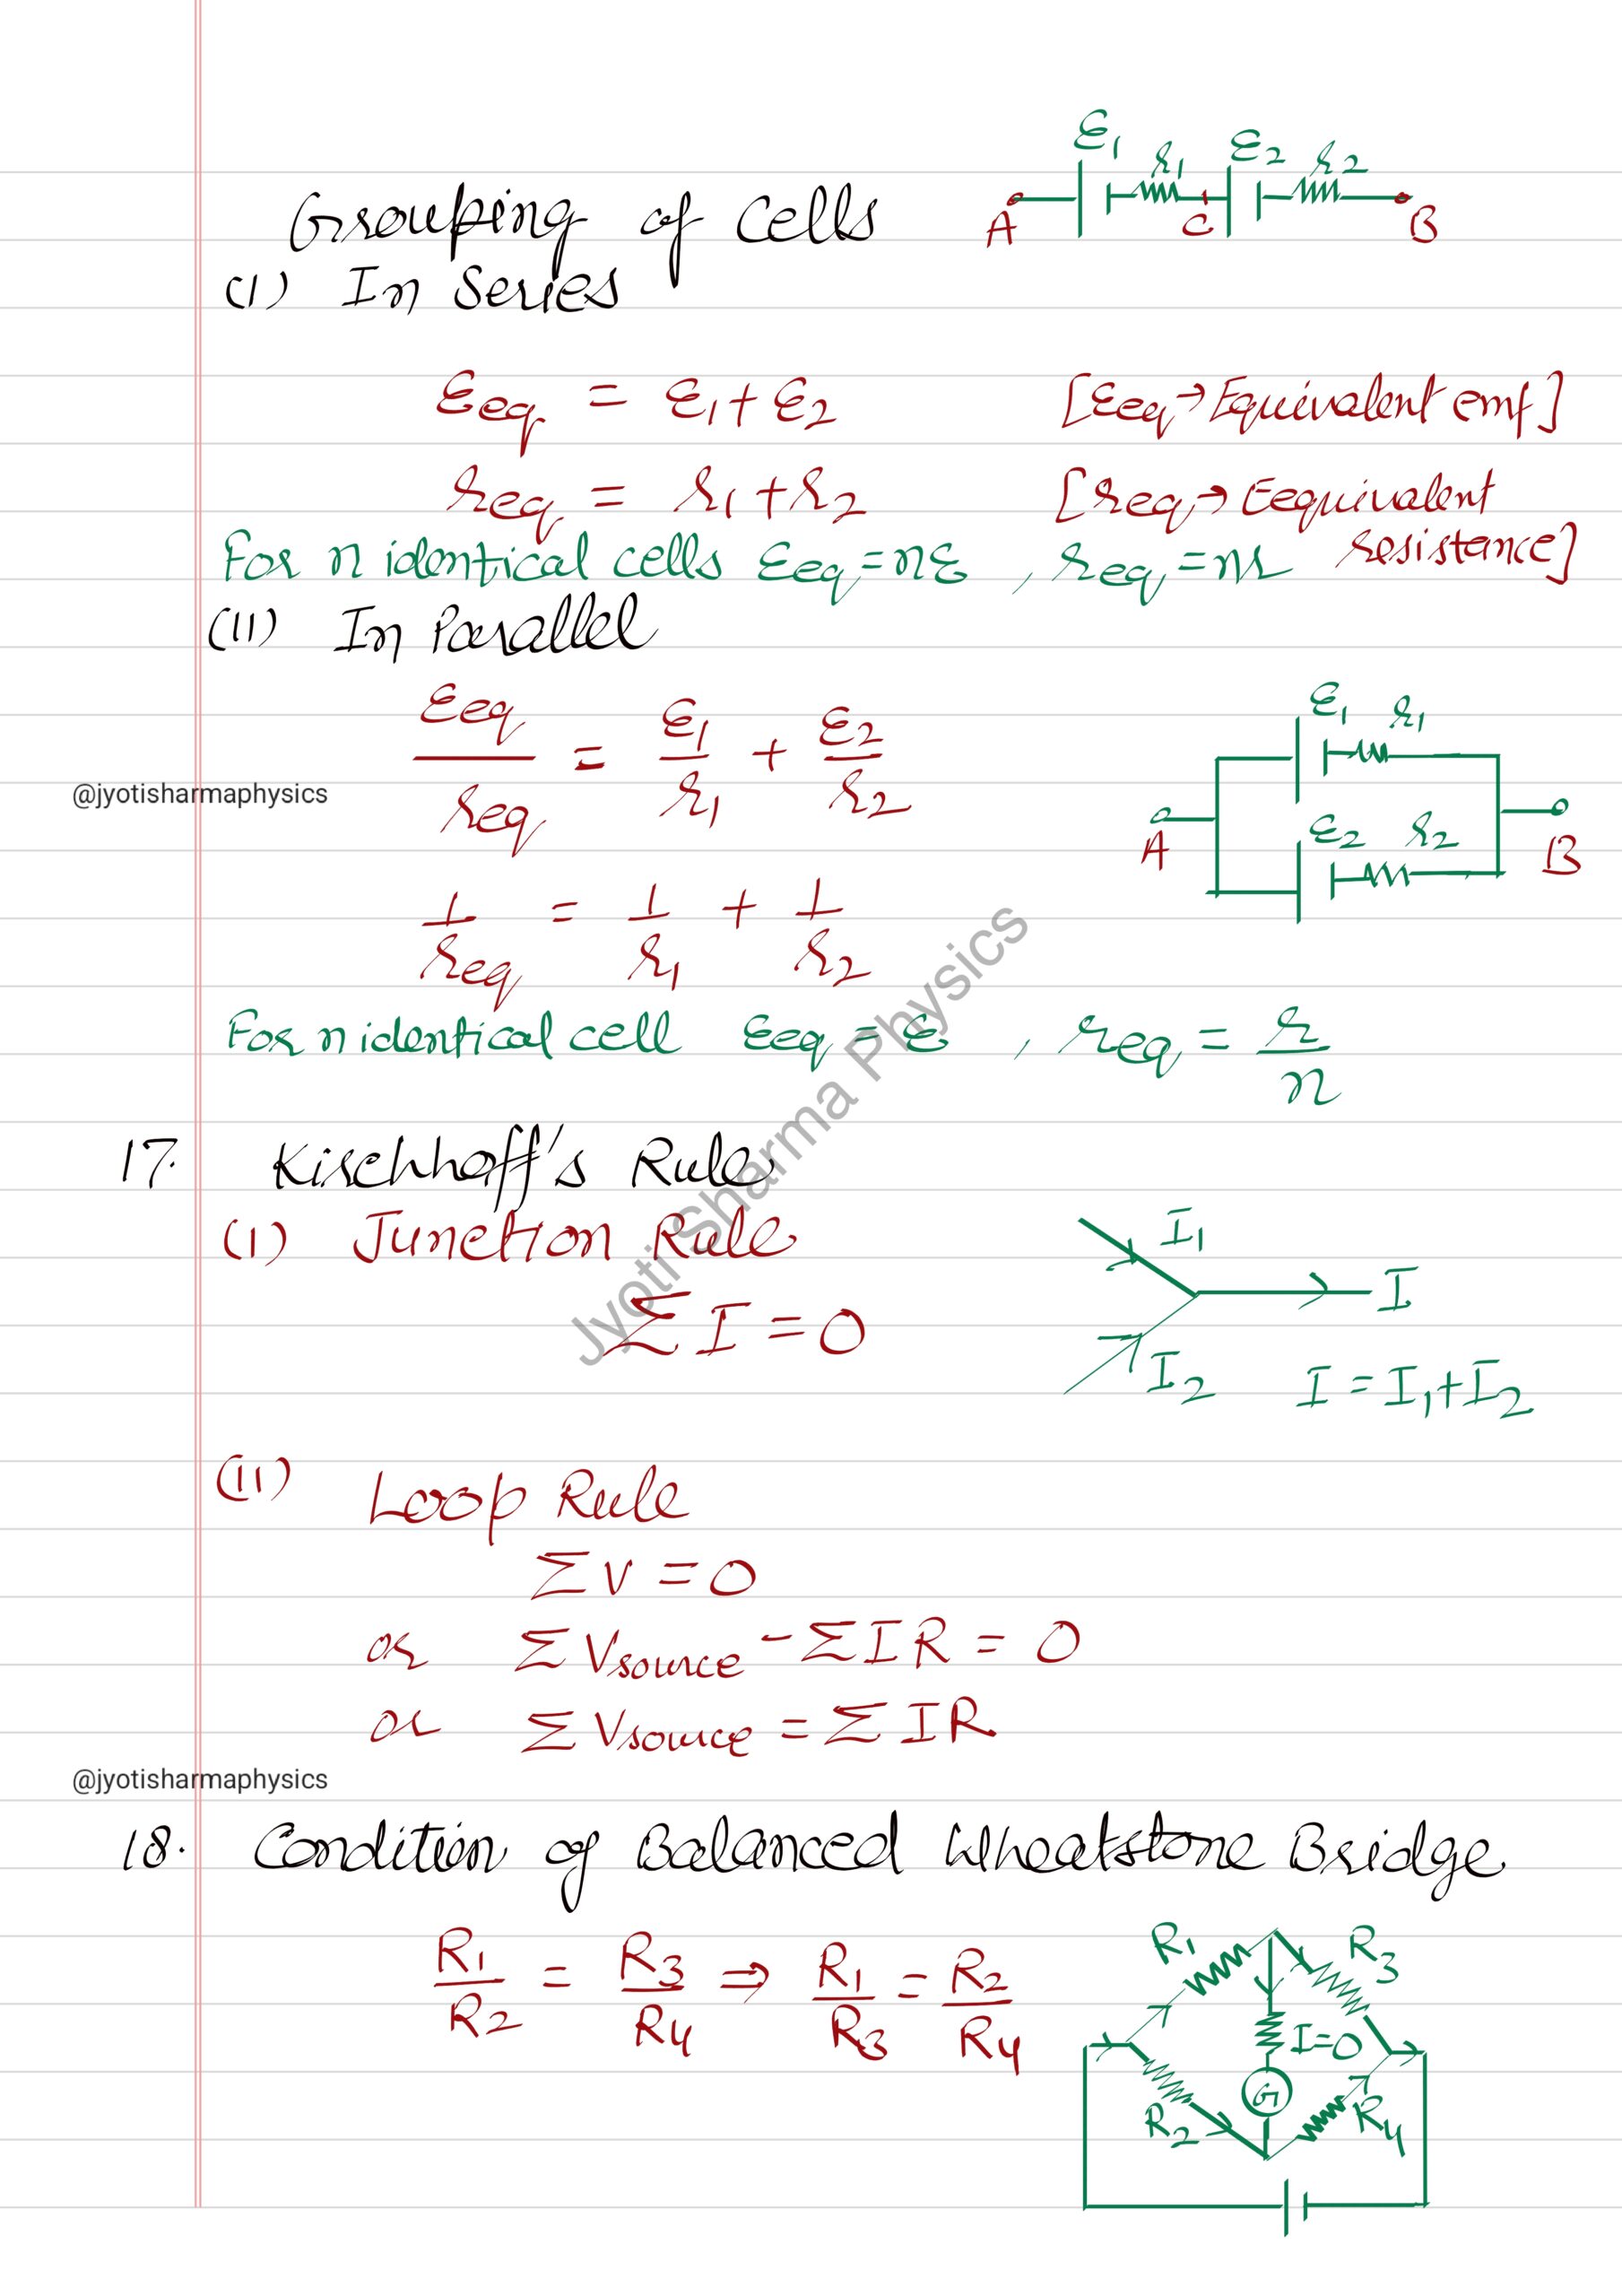 Grouping of Cells
ε₁ r₁ ε₂ r₂
A C B
(i) In Series
εeq = ε₁ + ε₂ [εeq → Equivalent emf]
req = r₁ + r₂ [req → Eequivalent resistance]
For n identical cells εeq = nε , req = nr
(ii) In Parallel
εeq/req = ε₁/r₁ + ε₂/r₂
ε₁ r₁
ε₂ r₂
A B
@jyotisharmaphysics
1/req = 1/r₁ + 1/r₂
For n identical cell εeq = ε , req = r/n
Jyoti Sharma Physics
17. Kirchhoff's Rule
(i) Junction Rule
ΣI = 0
I₁
I
I₂ I = I₁ + I₂
(ii) Loop Rule
ΣV = 0
or ΣVsource - ΣIR = 0
or ΣVsource = ΣIR
@jyotisharmaphysics
18. Condition of Balanced Wheatstone Bridge
R₁/R₂ = R₃/R₄ ⇒ R₁/R₃ = R₂/R₄
R₁ R₃
I=0
G
R₂ R₄